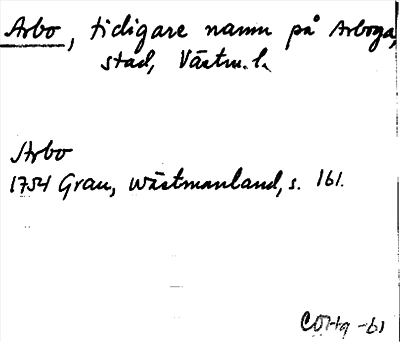 Arbo, tidigare namn på Arboga,
stad, Västm. l.
Arbo
1754 Grau, Wästmanland, s. 161.
-61